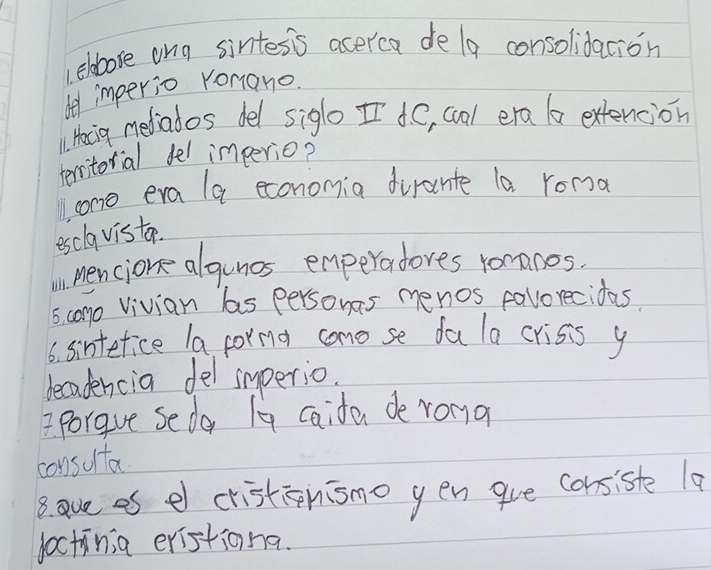 1. elabore una sintesis acerca de la consolidación
del imperio romano.
11. Hacia mediados del siglo II d.C, cual era la extención
territorial del imperio?
111. como era la economia durante la roma
esclavista.
1111. Mencione algunos emperadores romanos.
5. como vivian las personas menos favorecidas.
6. sintetice la forma como se da la crisis y
decadencia del imperio.
7 Porque se da la caida de roma
consulta
8. que es el cristianismo y en que consiste la
doctrinia cristiana.